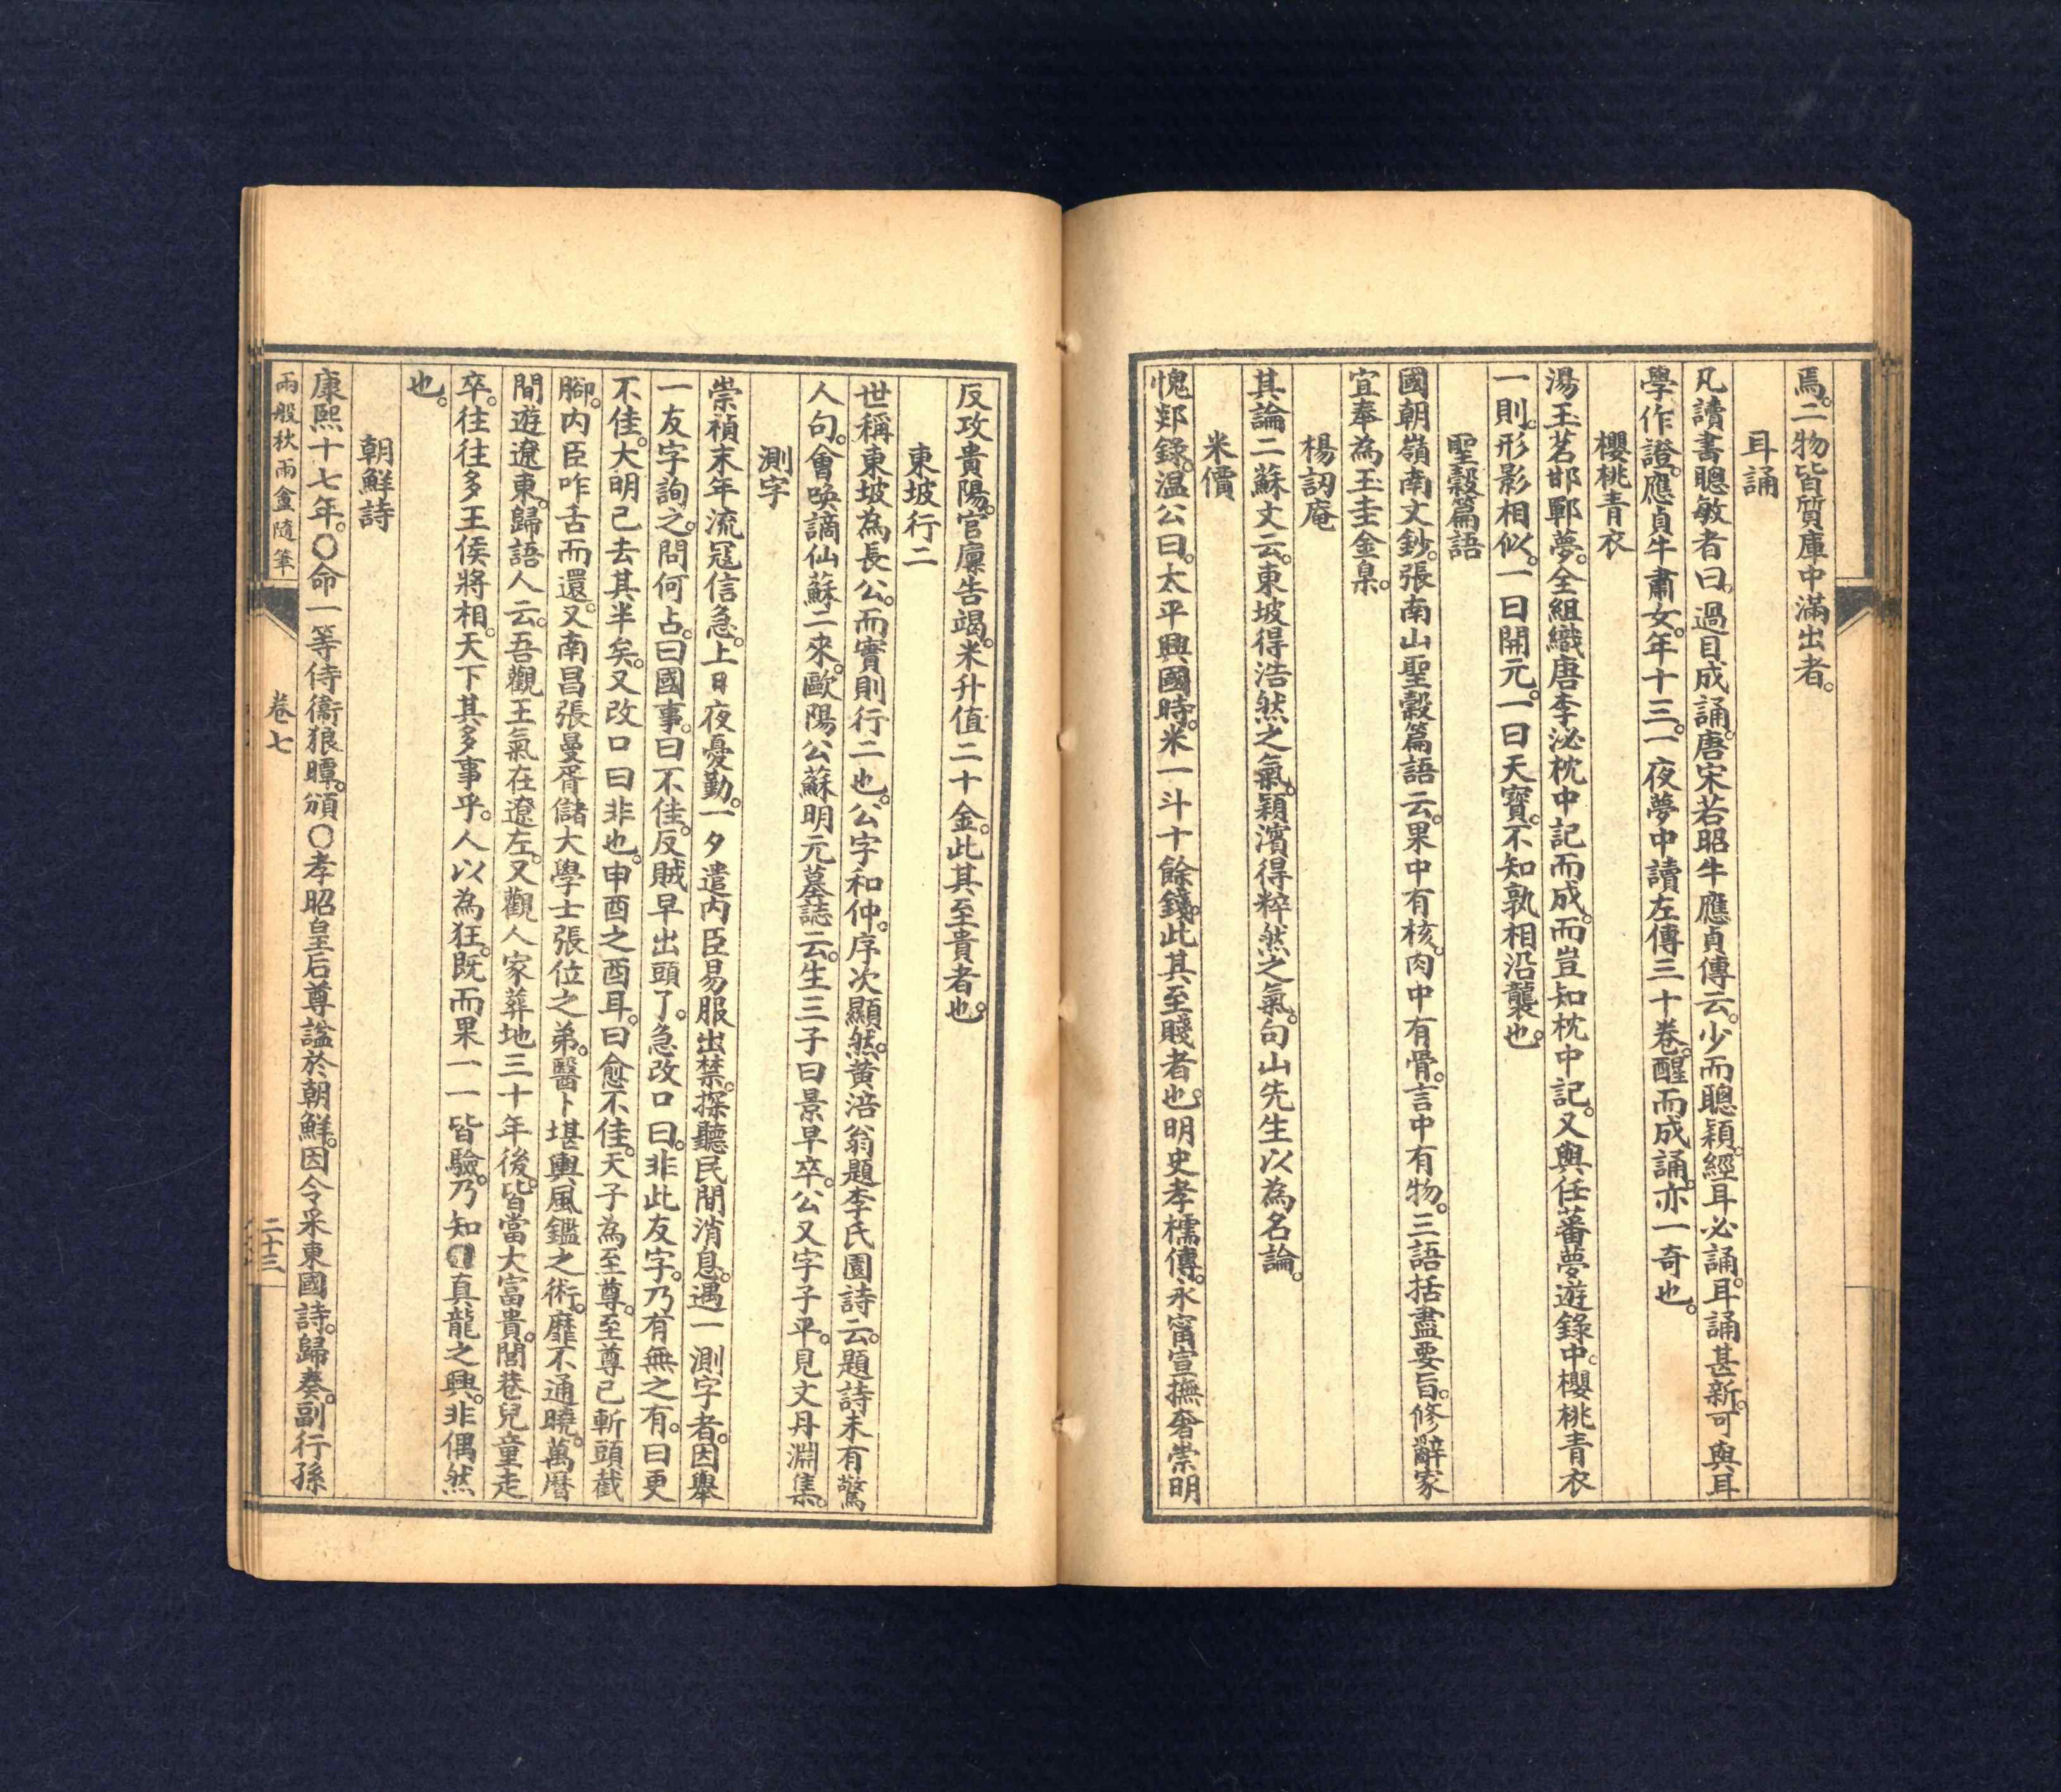 焉。二物皆質庫中滿出者。
耳誦
凡讀書聰敏者曰。過目成誦。唐宋若昭牛應貞傳云。少而聰穎。經耳必誦。耳誦甚新。可與耳
學作證。應貞牛肅女。年十三。一夜夢中讀左傳三十卷。醒而成誦。亦一奇也。
櫻桃青衣
湯玉茗邯鄲夢。全組織唐李泌枕中記而成。而豈知枕中記。又與任蕃夢遊錄中。櫻桃青衣
一則。形影相似。一曰開元。一曰天寶。不知孰相沿襲也。
聖穀篇語
國朝嶺南文鈔。張南山聖穀篇語云。果中有核。肉中有骨。言中有物。三語括盡要旨。修辭家
宜奉為玉圭金臬。
楊訒庵
其論二蘇文云。東坡得浩然之氣。穎濱得粹然之氣。句山先生以為名論。
米價
愧郯錄。温公曰。太平興國時。米一斗十餘錢。此其至賤者也。明史孝櫺傳。永甯宣撫奢崇明
反攻貴陽。官廪告竭。米升值二十金。此其至貴者也。
東坡行二
世稱東坡為長公。而實則行二也。公字和仲。序次顯然。黄涪翁題李氏園詩云。題詩未有驚
人句。會喚謫仙蘇二來。歐陽公蘇明元墓誌云。生三子曰景早卒。公又字子平。見文丹淵集。
測字
崇禎末年流冦信急。上日夜憂勤。一夕遣内臣易服出禁。探聽民間消息。遇一測字者。因舉
一友字詢之。問何占。曰國事。曰不佳。反賊早出頭了。急改口曰。非此友字。乃有無之有。曰更
不佳。大明已去其半矣。又改口曰非也。申酉之酉耳。曰愈不佳。天子為至尊。至尊已斬頭截
腳。内臣咋舌而還。又南昌張曼胥儲大學士張位之弟。醫卜堪輿風鑑之術。靡不通曉。萬曆
間遊遼東。歸語人云。吾觀王氣在遼左。又觀人家葬地三十年後。皆當大富貴。閭巷兒童走
卒。往往多王侯將相。天下其多事乎。人以為狂。既而果一一皆驗。乃知真龍之興。非偶然
也。
朝鮮詩
康熙十七年。〇命一等侍衞狼瞫。頒〇孝昭皇后尊謚於朝鮮。因令采東國詩。歸奏。副行孫
兩般秋雨盦隨筆
卷七
二十三